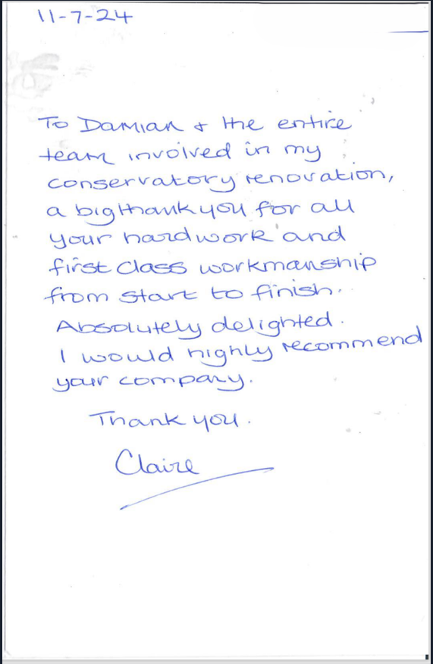 11-7-24
To Damian & the entire
team involved in my
conservatory renovation,
a big thank you for all
your hard work and
first class workmanship
from start to finish.
Absolutely delighted.
I would highly recommend
your company.
Thank you.
Claire